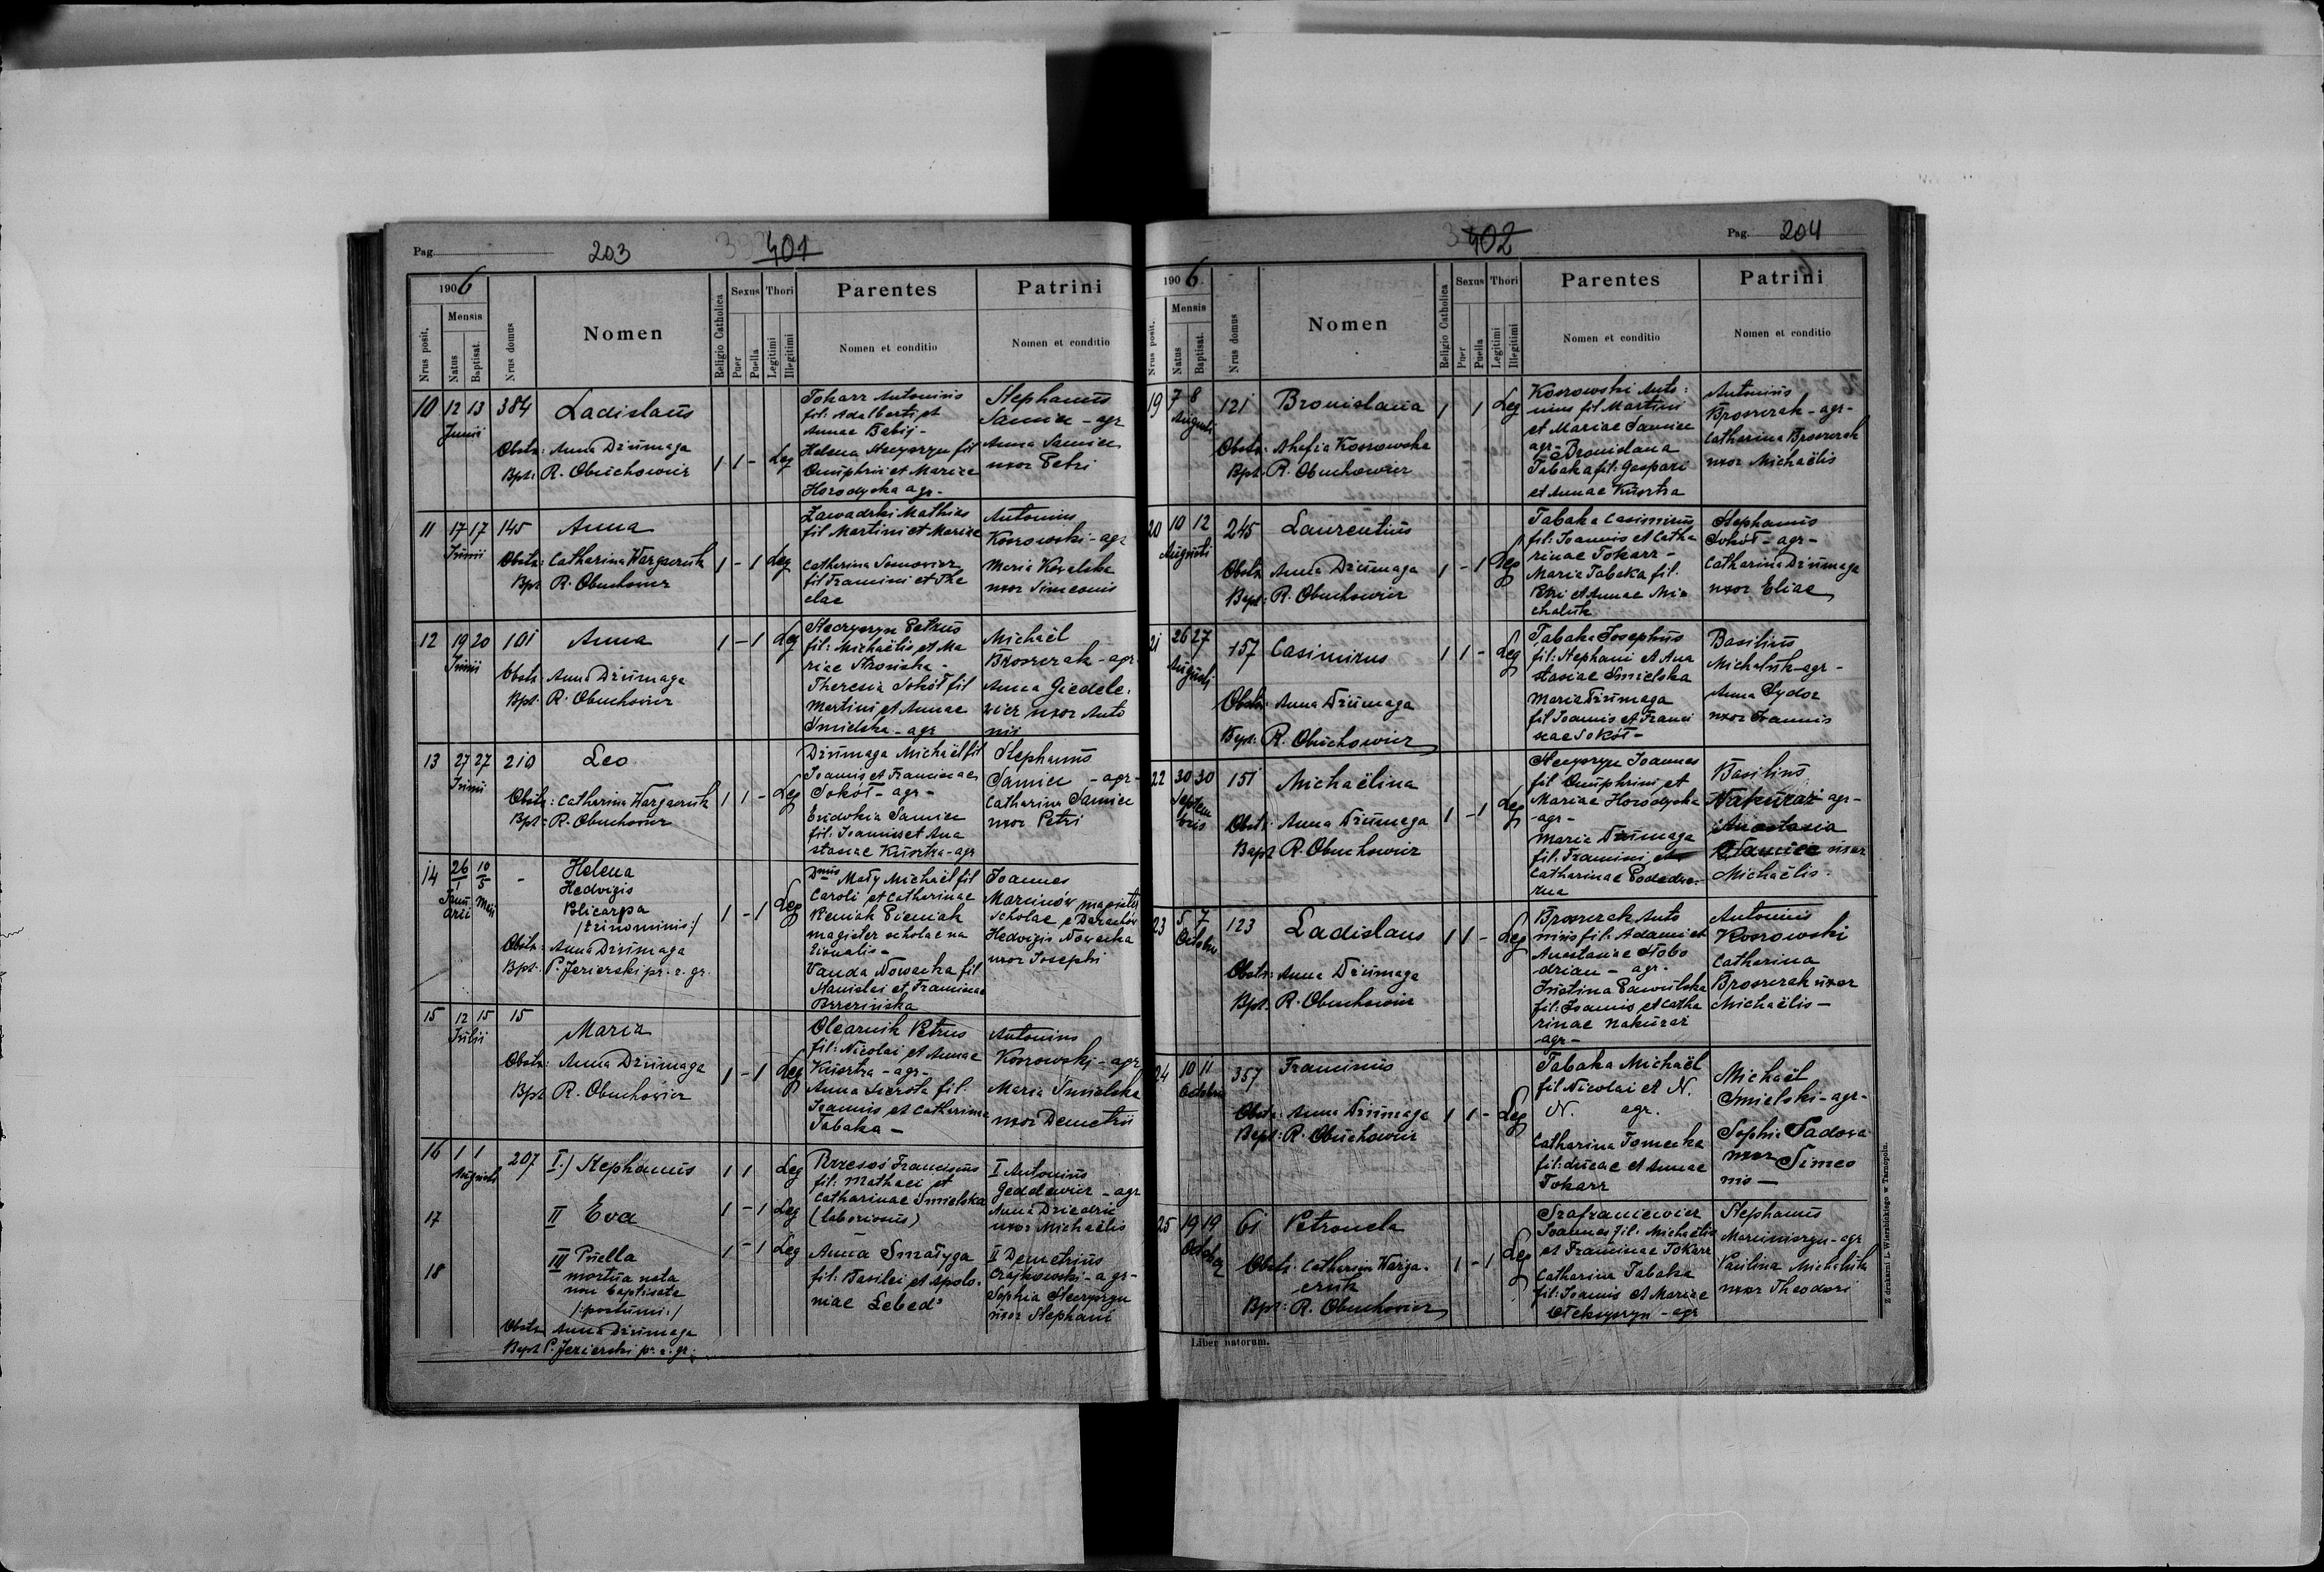 Pag. 203 401
1906
Nrus posit.
Mensis
Natus
Baptisat.
Nrus domus
Nomen
Religio Catholica
Sexus
Puer
Puella
Thori
Legitimi
Illegitimi
Parentes
Nomen et conditio
Patrini
Nomen et conditio
10 12 13 384 Ladislaus
Junii
Obstx: Anna Dziumaga
Bpt: R. Obuchowicz
1 1 - Leg
Tokarz Antonius
fil. Adalberti et
Annae Babij -
Helena Steczyszyn fil
Onuphrii et Mariae
Horodyska agr -
Stephanus
Samiec - agr
Anna Samiec
uxor Petri
11 17 17 145 Anna
Junii
Obstx: Catharina Wargaczuk
Bpt R. Obuchowicz
1 - 1 Leg
Zawadzki Mathias
fil Martini et Mariae
Catharina
fil Francisci et The
clae
Antonius
Kossowski - agr
Maria Kowalska
uxor Simeonis
12 19 20 101 Anna
Junii
Obstx: Anna Dziumaga
Bpt: R. Obuchowicz
1 - 1 Leg
Steczyszyn Petrus
fil: Michaëlis et Ma
riae
Theresia Sokół fil
Martini et Annae
Smielska - agr
Michaël
Broszczak - agr.
Anna Giedele.
wicz uxor Anto
nii
13 27 27 210 Leo
Junii
Obstx: Catharina Wargaczuk
Bpt: R. Obuchowicz
1 1 - Leg
Dziumaga Michaël fil
Joannis et Franciscae
Sokół - agr -
Eudokia Samiec
fil: Joannis et Ana
stasiae Kusztra - agr
Stephanus
Samiec - agr -
Catharina Samiec
uxor Petri
14 26/1 10/5 - Helena
Janu
arii Maji
Hedvigis
Policarpa
/:trinominis:/
Obstx: Anna Dziumaga
Bpt: P. Jezierski pr. r. gr.
1 - 1 Leg
Dnus Mały Michaël fil
Caroli et Catharinae
Pieniak
magister scholae na
tionalis -
Vanda Nowacka fil
Stanislai et Franciscae
Brzezińska
Joannes
Marcinów magister
scholae e Darachów
Hedvigis Nowacka
uxor Josephi
15 12 15 15 Maria
Julii
Obstx: Anna Dziumaga
Bpt R. Obuchowicz
1 - 1 Leg
Olearnik Petrus
fil: Nicolai et Annae
Kusztra - agr -
Anna Sierota fil.
Joannis et Catharina
Tabaka -
Antonius
Kossowski - agr
Maria Smielska
uxor Demetrii
16 1 1 207 I.) Stephanus 1 1 Leg
Augusti
17 II Eva 1 - 1 Leg
18 III Puella 1 - 1 Leg
mortua nata
non baptisata
/:postumi:/
Obstx Anna Dziumaga
Bapt P. Jezierski pr. r. gr.
Brzesoś Franciscus
fil. Mathaei et
Catharinae Smielska
(laboriosus)
Anna Smałyga
fil: Basilei et Apolo.
niae Łebed'
I Antonius
Gedelewicz - agr
Anna Dziedzic
uxor Michaëlis
II Demetrius
Czajkowski - agr -
Sophia Steczyszyn
uxor Stephani
402 Pag. 204
1906
Nrus posit.
Mensis
Natus
Baptisat.
Nrus domus
Nomen
Religio Catholica
Sexus
Puer
Puella
Thori
Legitimi
Illegitimi
Parentes
Nomen et conditio
Patrini
Nomen et conditio
19 7 8 121 Bronislava
Augusti
Obstx: Kossowska
Bpt R. Obuchowicz
1 1 Leg
Kossowski Anto:
nius fil Martini
et Mariae Samiec
agr - Bronislava
Tabaka fil: Gaspari
et Annae Kusztra
Antonius
Broszczak - agr -
Catharina Broszczak
uxor Michaëlis
20 10 12 245 Laurentius
Augusti
Obstx Anna Dziumaga
Bapt: R. Obuchowicz
1 - 1 Leg
Tabaka Casimirus
fil: Joannis et Catha
rinae Tokarz -
Maria Tabaka fil.
Petri et Annae Mi
chaluk
Stephanus
Sokół - agr -
Catharina Dziumaga
uxor Eliae
21 26 27 157 Casimirus
Augusti
Obstx: Anna Dziumaga
Bapt: R. Obuchowicz
1 1 - Leg
Tabaka Josephus
fil: Stephani et Ana
stasiae Smielska
Maria Dziumaga
fil Joannis et Franci
scae Sokół -
Basilius
Michaluk - agr -
Anna Sydor
uxor Joannis
22 30 30 151 Michaëlina
Septem
bris
Obstx: Anna Dziumaga
Bapt R. Obuchowicz
1 - 1 Leg
Steczyszyn Joannes
fil Onuphrini et
Mariae Horodyska
- agr -
Maria Dziumaga
fil. Francisci et
Catharinae
Basilius
Nakuraź - agr -
Anastasia
Samiec uxor
Michaëlis.
23 5 7 123 Ladislaus
Octobris
Obstx: Anna Dziumaga
Bpt: R. Obuchowicz
1 1 - Leg
Broszczak Anto
nius fil: Adami et
Anastasiae Słobo
drian - agr.
Justina
fil: Joannis et Catha
rinae Nakuraź
agr -
Antonius
Kossowski
Catharina
Broszczak uxor
Michaëlis -
24 10 11 357 Franciscus
Octobris
Obstx: Anna Dziumaga
Bapt: R. Obuchowicz
1 1 - Leg
Tabaka Michaël
fil Nicolai et N.
N. agr.
Catharina Tomecka
fil: Lucae et Annae
Tokarz
Michaël
Smielski - agr -
Sophia Sadova
uxor Simeo
nis -
25 19 19 61 Petronela
Obstx: Catharina Warga.
czuk
Bpt: R. Obuchowicz
1 - 1 Leg
Szafraniewicz
Joannes fil. Michaëlis
et Franciscae Tokarz
Catharina Tabaka
fil: Joannis et Mariae
Steczyszyn - agr
Stephanus
Marciniszyn - agr
Paulina Michaluk
uxor Theodori
Liber natorum.
Z drukarni L. Wierzbickiego w Tarnopolu.